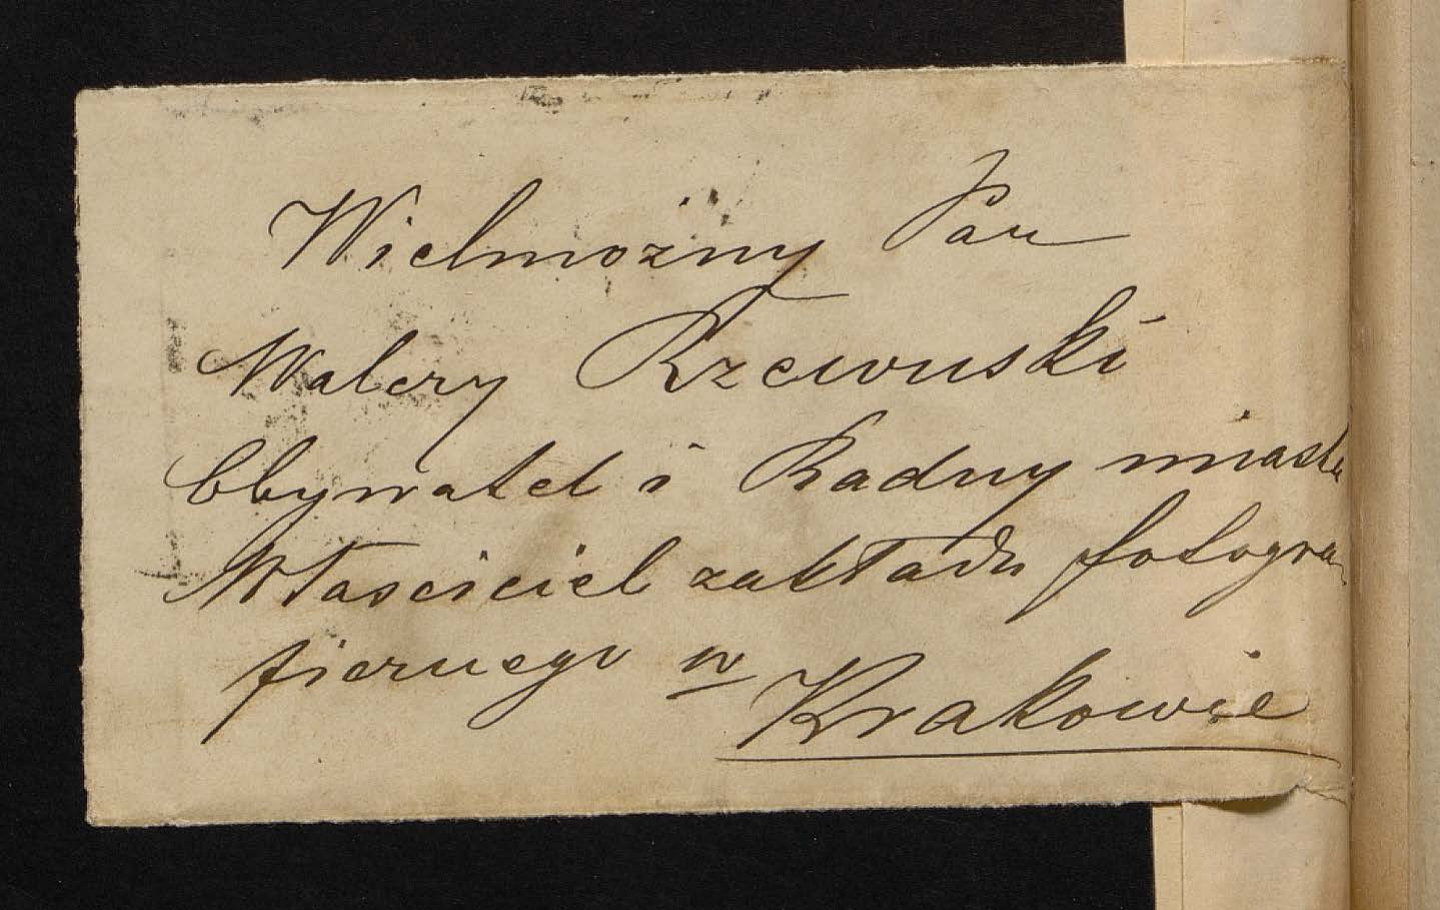 Wielmożny Pan
Walery Rzewuski
Obywatel i Radny miasta
Właściciel zakładu fotogra
fiernego w
Krakowie